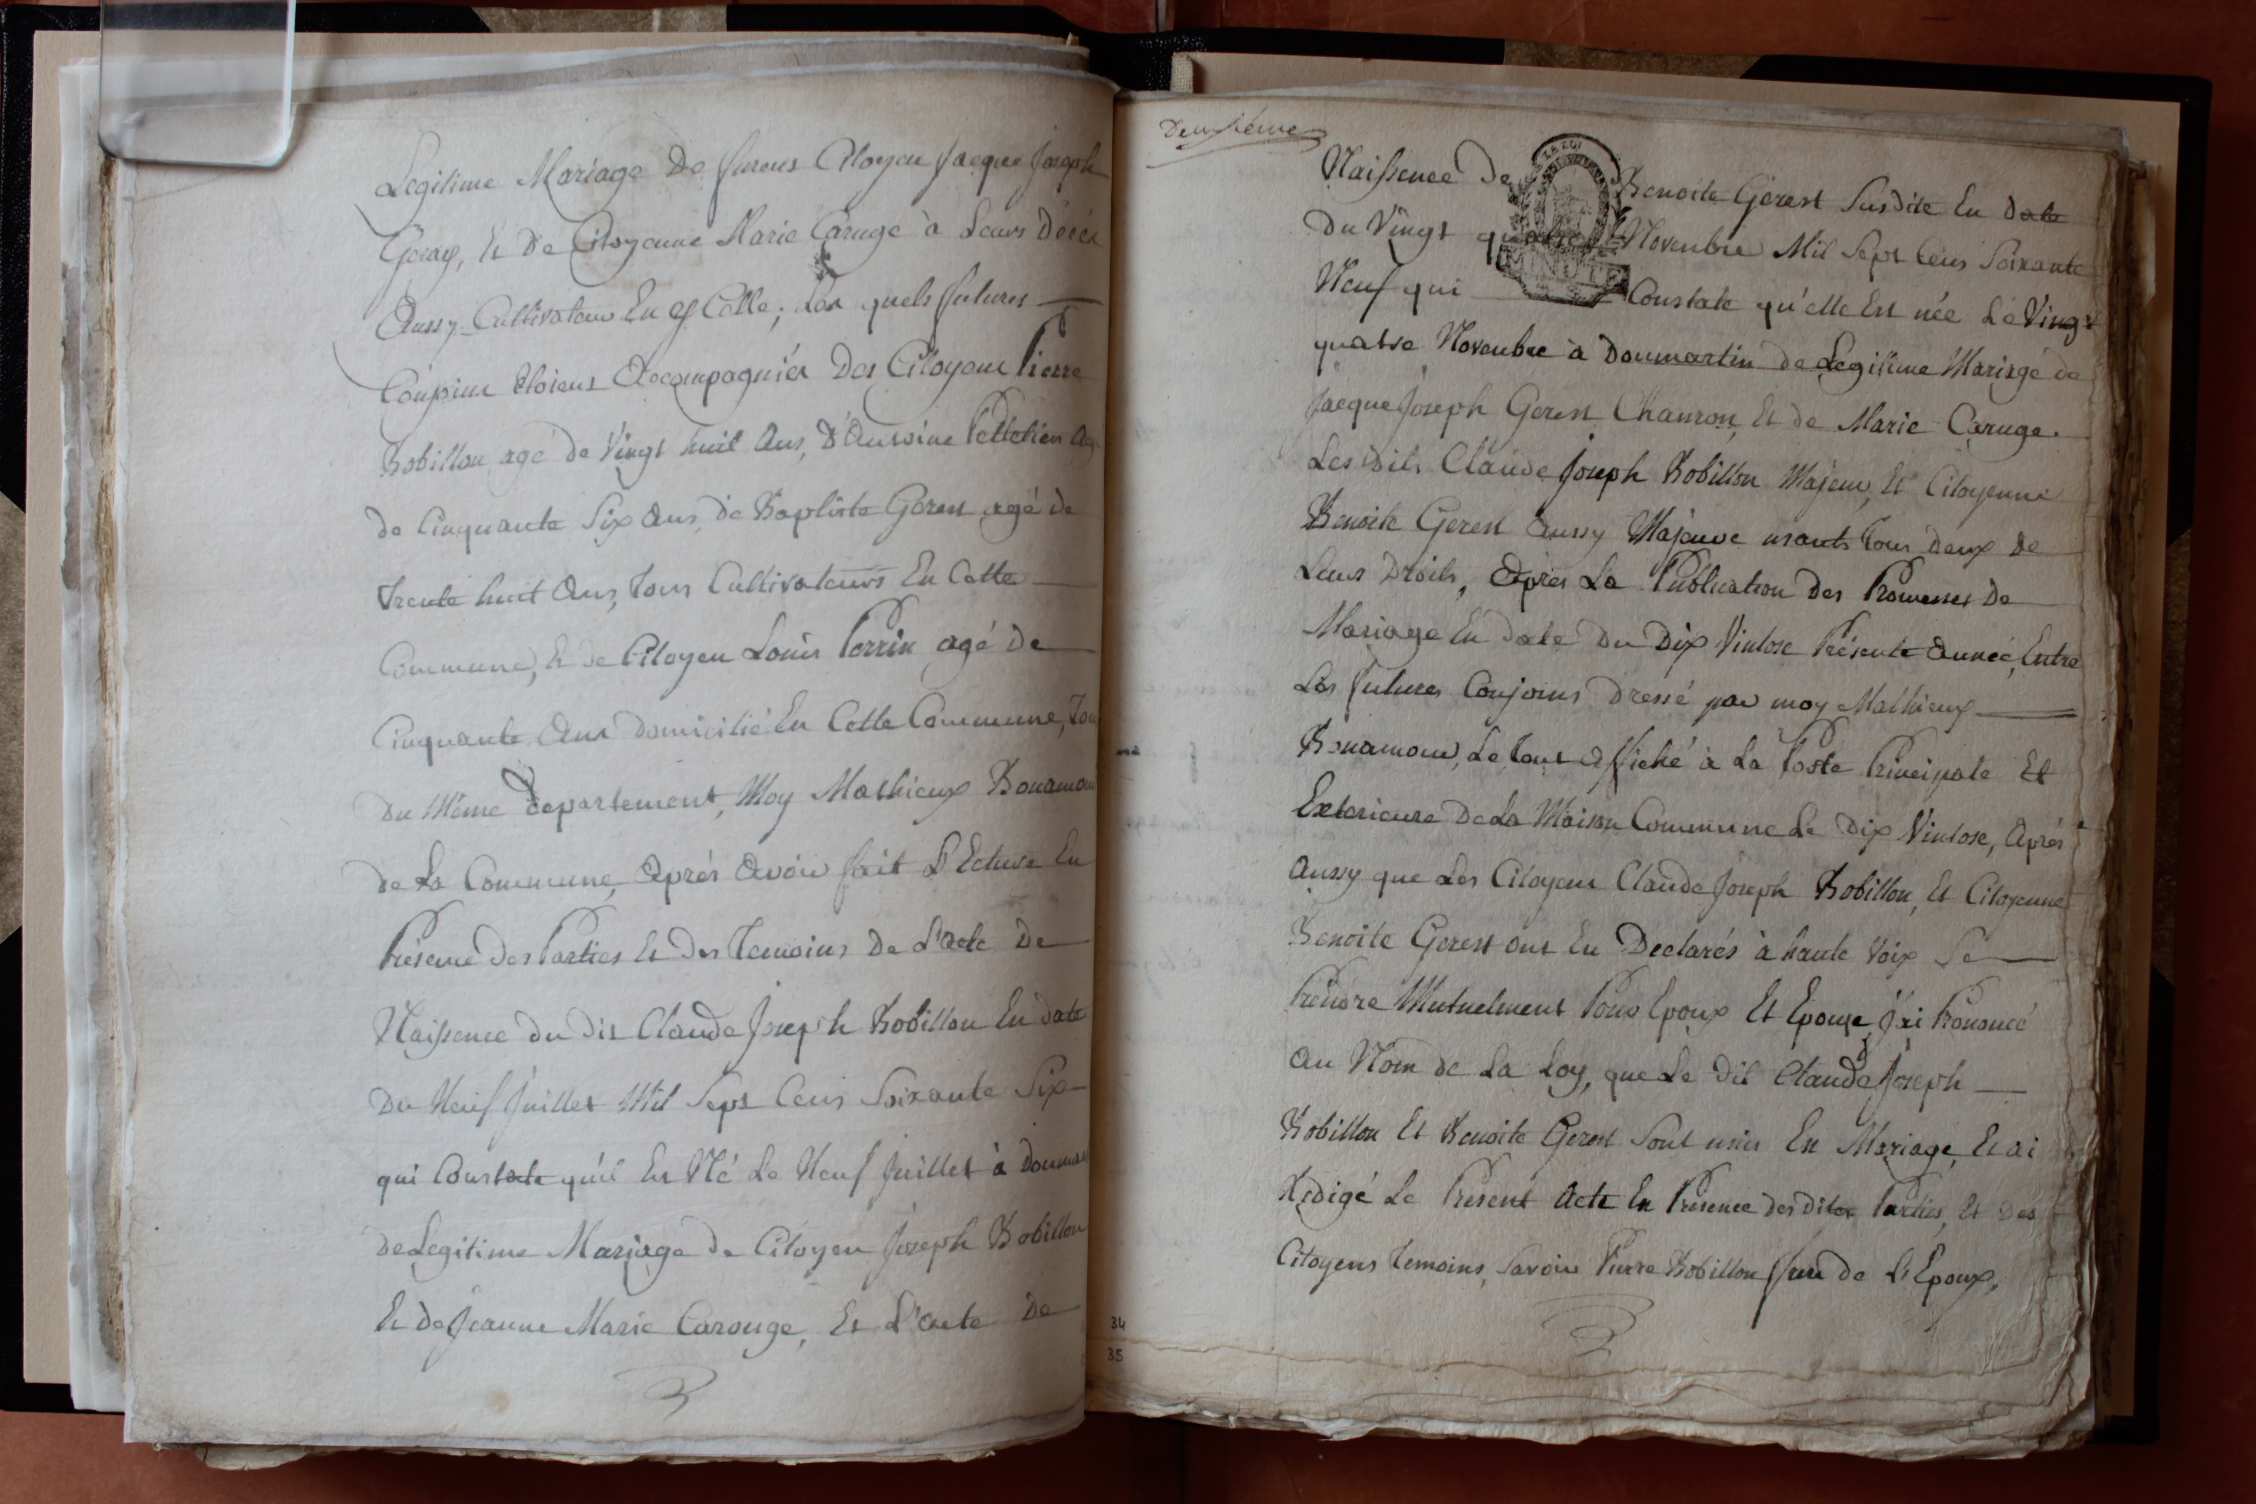 Legitime Mariage De furens Citoyen Jacque Joseph
Gerax, Et De Citoyenne Marie Caruge à Leurs Décès
Aussy Cultivateur En Celle; Les quels futures
Conjoins Etoient Accompagniés Des Citoyens Pierre
Robillon agé de Vingt huit Ans, D'Antoine Pelletier Agé
de Cinquante Six Ans, de Baptiste Gerest agé de
Trente huit Ans, Tous Cultivateurs En Cette
Commune, Et de Citoyen Louis Perrin agé De
Cinquante Ans Domicilié En Cette Commune, Tous
Du Même Departement, Moy Mathieux Bonamour
de La Commune, Aprés Avoir fait L'Ecture En
Présence Des Parties Et Des Temoins De L'acte De
Naissence du dit Claude Joseph Robillon En date
Du Neuf Juillet Mil Sept Cens Soixante Six
qui Constate qu'il Est Né Le Neuf Juillet à Doumar
de Legitime Mariage de Citoyen Joseph Robillon
Et de Jeanne Marie Carouge, Et L'acte De
Deuxiéme
Naissence De Benoite Gerest Susdite En Date
Du Vingt quatre Novembre Mil Sept Cens Soixante
Neuf qui Constate qu'elle Est née Le Vingt
quatre Novembre à Doumartin de Legitime Mariage de
Jacque Joseph Gerest Chanron, Et de Marie Caruge.
Les dits Claude Joseph Robillon Majeur, Et Citoyenne
Benoite Gerest Aussy Majeure usants Tous Deux de
Leurs Droits, Après La Publication Des Promesses De
Mariage En Date Du Dix Vintose Présente Année, Entre
Les futures Conjoins Dressé par moy Mathieux
Bonamour, Le Tout Affiché à La Porte Principale Et
Exterieure De La Maison Commune Le Dix Vintose, Aprés
Aussy que Les Citoyens Claude Joseph Robillon, Et Citoyenne
Benoite Gerest ont Eu Declarés à haute Voix Se
Prendre Mutuelment Pour Epoux Et Epouse, J'ai Prononcé
Au Nom de La Loy, que Le Dit Claude Joseph
Robillon Et Benoite Gerest Sont unies En Mariage, Et ai
Redigé Le Présent Acte En Présence desdites Parties, Et Des
Citoyens Temoins, Savoir Pierre Robillon frere de L'Epoux,
LA LOI
MINUTE
34
35